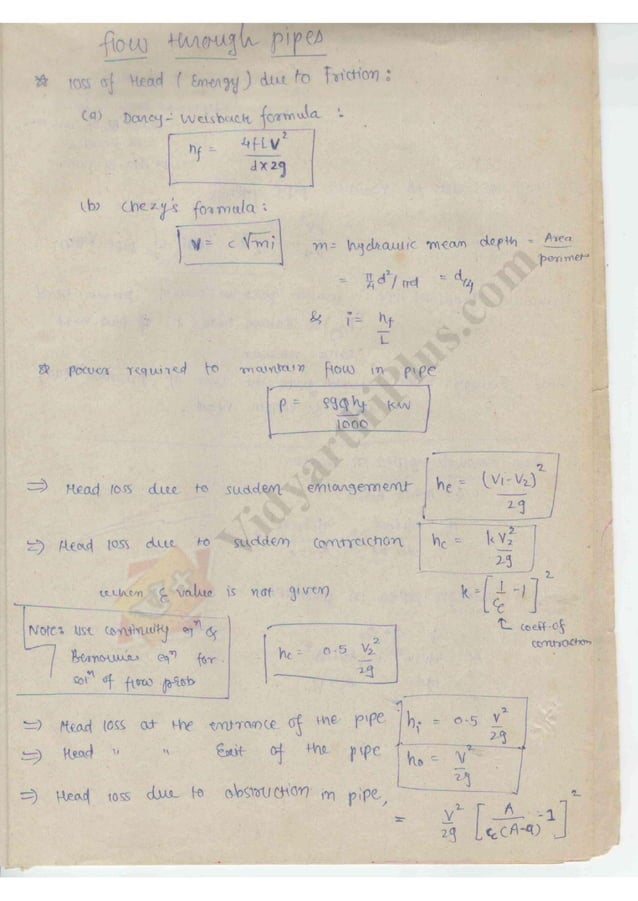 flow through pipes
* loss of Head (Energy) due to Friction:
(a) Darcy-Weisback formula:
hf = 4fLV² / d×2g
(b) Chezy's formula:
V = C√mi
m = hydraulic mean depth = Area / perimeter
= π/4 d² / πd = d/4
& i = hf / L
* power required to maintain flow in pipe
P = ρgQhf / 1000 kW
⇒ Head loss due to sudden enlargement he = (V1-V2)² / 2g
⇒ Head loss due to sudden contraction hc = kV2² / 2g
when Cc value is not given k = [1/Cc - 1]²
↑ coeff. of contraction
Note: Use continuity eqⁿ & Bernoullies eqⁿ for solⁿ of flow prob
hc = 0.5 V2² / 2g
⇒ Head loss at the entrance of the pipe: hi = 0.5 V² / 2g
⇒ Head " " Exit of the pipe ho = V² / 2g
⇒ Head loss due to obstruction in pipe, = V² / 2g [A / Cc(A-a) - 1]²
VidyarthiPlus.com
V+